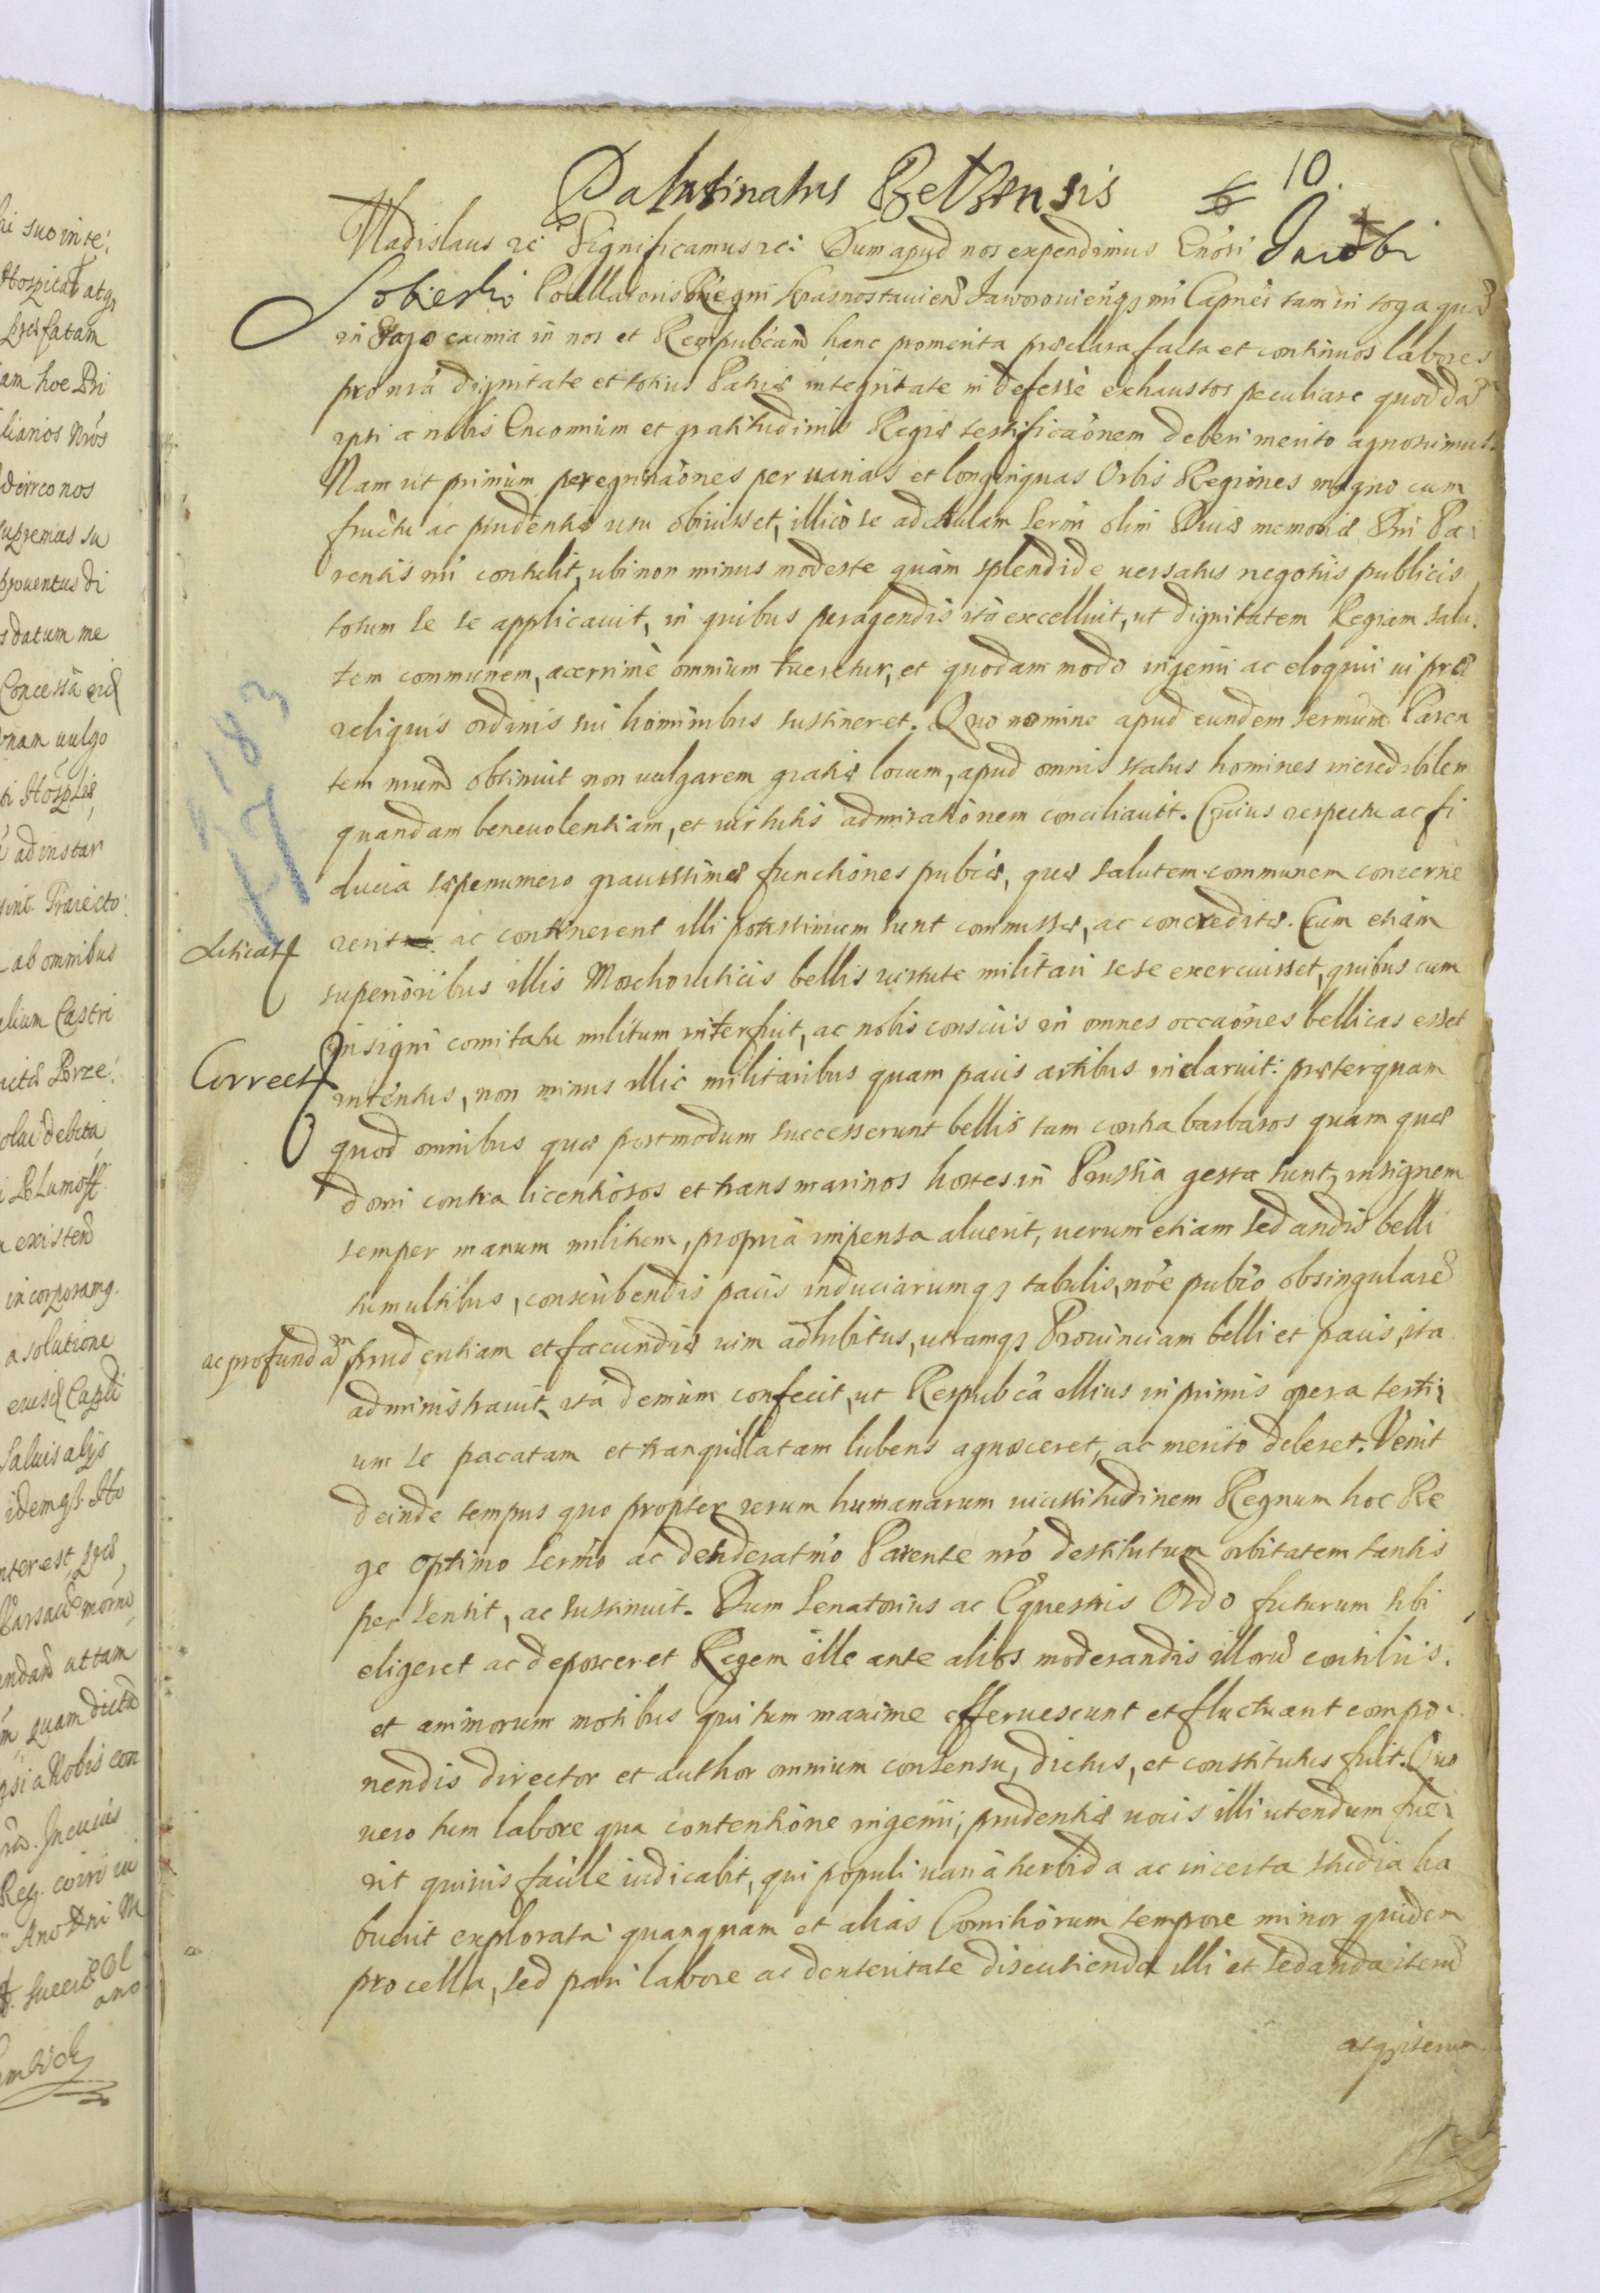 Palatinatus Belzensis
10.
Vladislaus rc Significamus rc: Dum apud nos expendimus Gnosi Jacobi
Sobieski Pocillatoris Regni Krasnostauien Jaworouienqз nri Capnei tam in toga quā
in sago eximia in nos et Rempubcam hanc promerita præclara facta et continuos labores
pro nrā dignitate et totius Patriæ integritate indefessè exhaustos peculiare quoddā
ipsi a nobis Encomium et gratitudinis Regiæ testificaonem deberi merito agnoscimus.
Nam ut primùm peregrinaones per uarias et longinquas Orbis Regiones magno cum
fructu ac prudentiæ usu obiuisset, illicò se ad Aulam Sermi olim Diuæ memoriæ Dni Pa:
rentis nri contulit, ubi non minus modeste quàm splendide uersatus negotiis publicis
totum se se applicauit, in quibus peragendis ita excelluit, ut dignitatem Regiam salu.
tem communem, acerrimè omnium tueretur, et quodam modo ingenii ac eloquii ui præ
reliquis ordinis sui hominibus sustineret. Quo nomine apud eundem Sermum Paren
tem nrum obtinuit non uulgarem gratiæ locum, apud omnis status homines incredibilem
quandam beneuolentiam, et uirtutis admirationem conciliauit. Cuius respectu ac fi
ducia sæpenumero grauissimæ functiones pubcæ, quæ salutem communem concerne
rent ac continerent illi potissimum sunt commissæ, ac concreditæ. Cum etiam
superioribus illis Moschouiticis bellis uirtute militari sese exercuisset, quibus cum
insigni comitatu militum interfuit, ac nobis consciis in omnes occaones bellicas esset
Correct
intentus, non minus illic militaribus quam pacis artibus inclaruit: præterquam
quod omnibus quæ postmodum successerunt bellis tam contra barbaros quàm quæ
domi contra licentiosos et transmarinos hostes in Prussia gesta sunt, insignem
semper manum militum, propriâ impensa aluerit, uerum etiam sedandis belli
tumultibus, conscribendis pacis induciarumqз tabulis, noe pubco ob singularē
ac profundam
prudentiam et facundiæ uim adhibitus, utramqз Prouinciam belli et pacis, ita
administrauit, ita demùm confecit, ut Respubca illius inprimis opera
um se pacatam et tranquillatam lubens agnosceret, ac merito deberet. Venit
deinde tempus quo propter rerum humanarum uicissitudinem Regnum hoc Re
ge optimo Sermo ac desideratmo Parente nro destitutum orbitatem tantis
per sensit, ac sustinuit. Dum Senatorius ac Equestris Ordo futurum sibi
eligeret ac deposceret Regem ille ante alios moderandis illorū consiliis.
et animorum motibus qui tum maxime efferuescunt et fluctuant compo:
nendis director et author omnium consensu, dictus, et constitutus fuit. Quo
uero tum labore qua contentione ingenii, prudentiæ uocis illi utendum fue:
rit quiuis facile iudicabit, qui populi uaria turbida ac incerta studia ha
buerit explorata quanquam et alias Comitiorum tempore minor quidem
procella, sed pari labore ac dexteritate discutienda illi et sedanda iterū
atqз iterum
hi suo inte:
Hospital atqз
præfatam
iam hoc Pri
lianos Nros
dirreo nos
supremas su
prouentus di
s datum me
Concessâ
nam uulgo
ad instar
Traiecto:
ab omnibus
Castri
debita
existen
incorporamq.
a solutione
Saluis alijs
idemqз
interest
attam
quam dicta
a Nobis con
Ano Dni M
ano